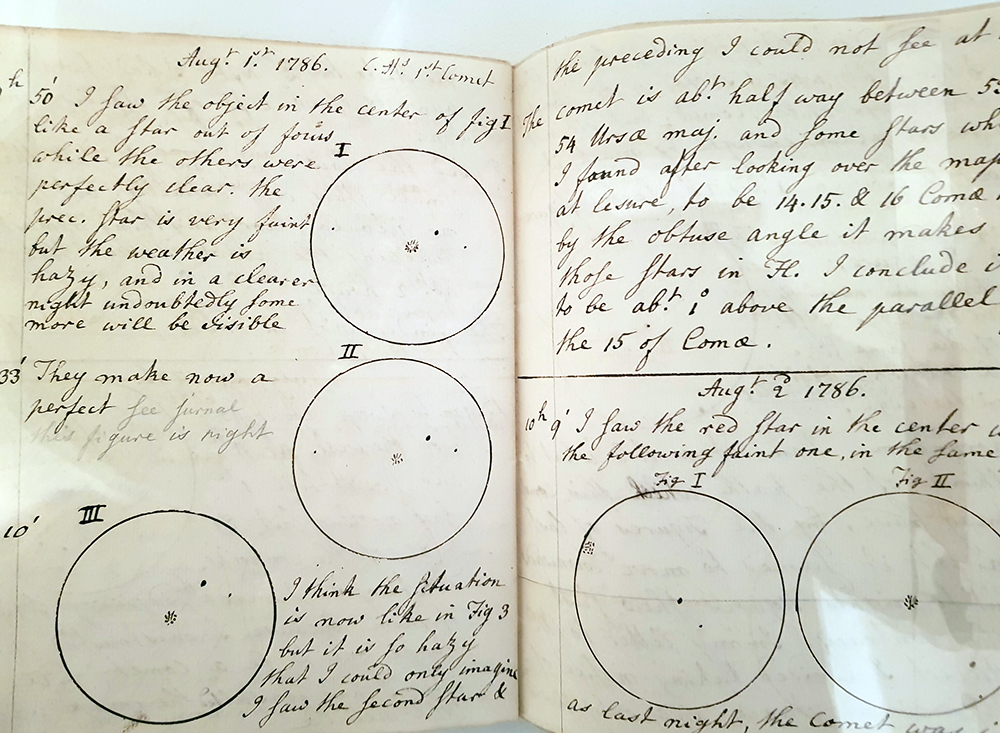 Augt. 1st. 1786. C. Hs. 1st Comet
h
50' I saw the object in the center of fig I
like a star out of focus
while the others were
perfectly clear. the
prec. star is very faint
but the weather is
hazy, and in a clearer
night undoubtedly some
more will be visible
I
II
33' They make now a
perfect see jurnal
this figure is right
III
10'
I think the situation
is now like in Fig 3
but it is so hazy
that I could only imagine
I saw the second star &
the preceding I could not see at
The comet is abt. half way between
54 Ursæ maj. and some stars
I found after looking over the
at lesure, to be 14. 15. & 16 Comæ.
by the obtuse angle it makes
those stars in H. I conclude
to be abt. 1° above the parallel
the 15 of Comæ.
Augt. 2d 1786.
10h 9' I saw the red star in the center
the following faint one, in the same
Fig I
Fig II
as last night, the Comet was